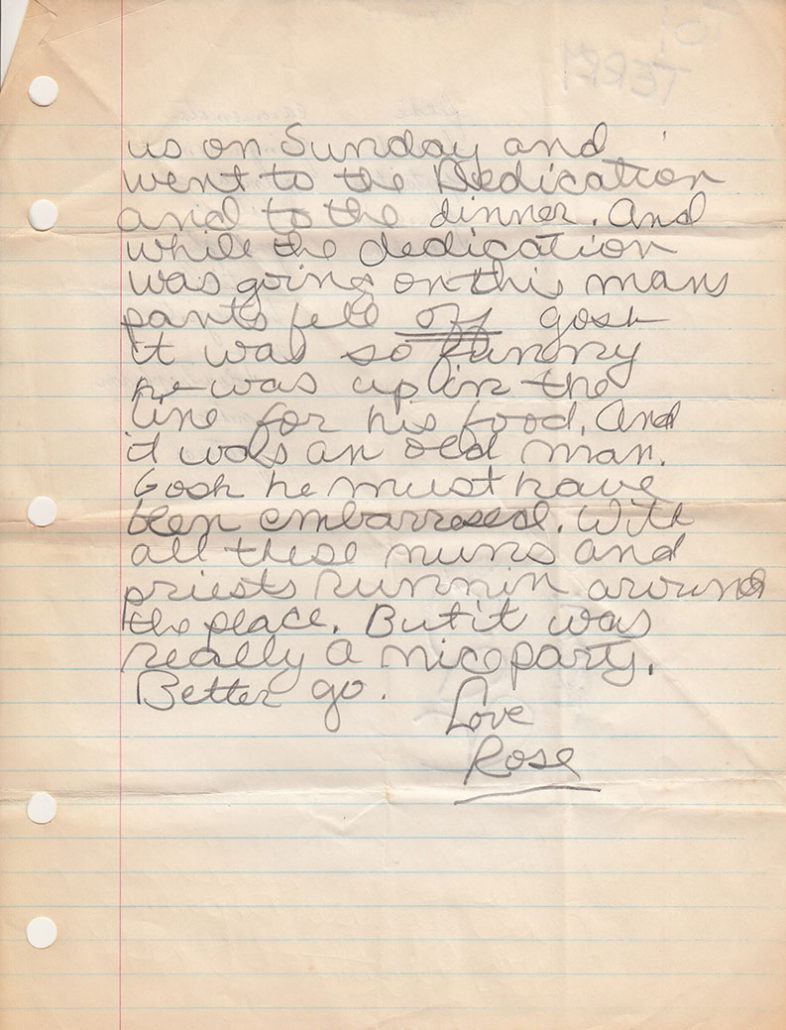 us on Sunday and
went to the Dedication
and to the dinner. And
while the dedication
was going on this mans
pants fell off gosh
it was so funny
he was up in the
line for his food. And
it was an old man.
Gosh he must have
been embarrased. With
all these nuns and
priests runnin around
the place. But it was
really a nice party.
Better go.
Love
Rose
TERRY